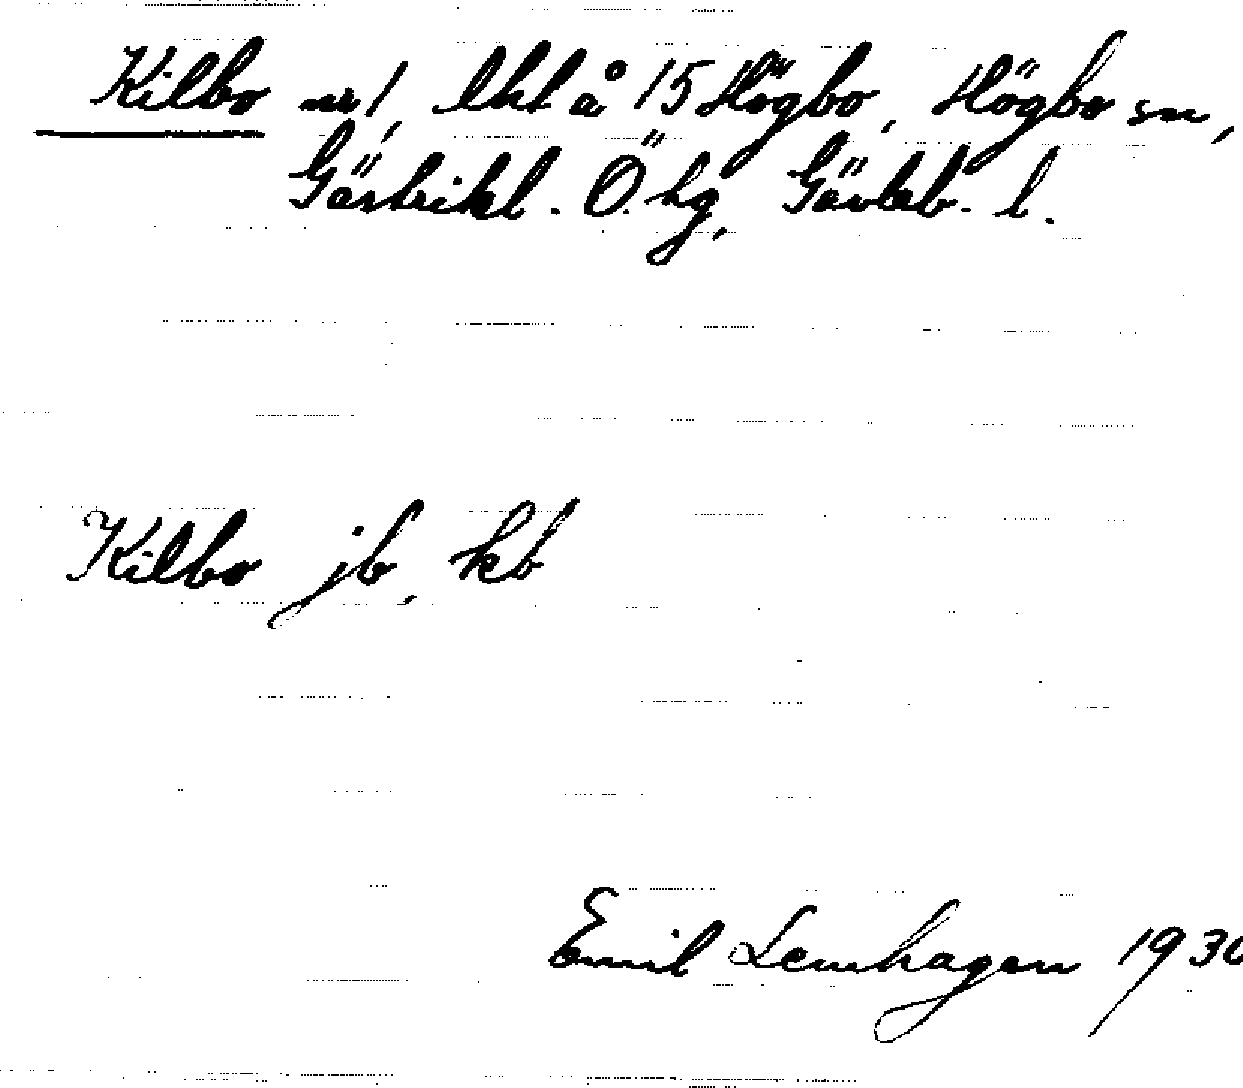 Kilbo nr 1, lht å 15 Högbo, Högbo sn,
Gästrikl. Ö. hg, Gävleb. l.
Kilbo jb, kb
Emil Lemhagen 1930